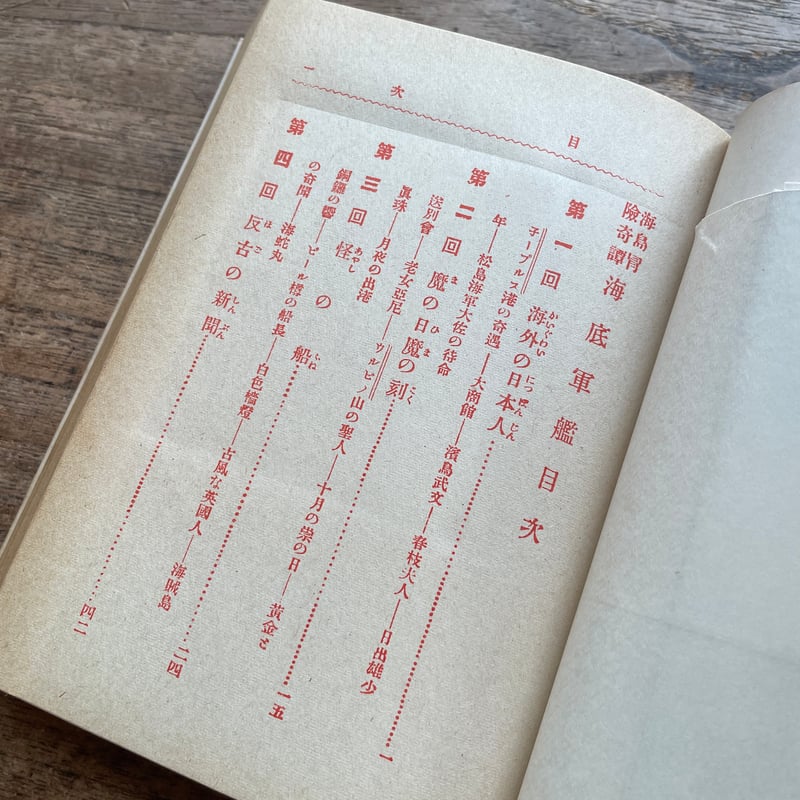 目次 一
海島冒
險奇譚
海底軍艦目次
かいぐわい につぽんじん
第一回 海外の日本人……一
子ープルス港の奇遇――大商館――濱島武文――春枝夫人――日出雄少
年――松島海軍大佐の待命
ま ひ ま こく
第二回 魔の日魔の刻……一五
送別會――老女亞尼――ウルピノ山の聖人――十月の祟の日――黄金と
眞珠――月夜の出港
あやし ふね
第三回 怪の船……二四
銅鑼の響――ビール樽の船長――白色檣燈――古風な英國人――海賊島
の奇聞――海蛇丸
ほご しんぶん
第四回 反古の新聞……四二